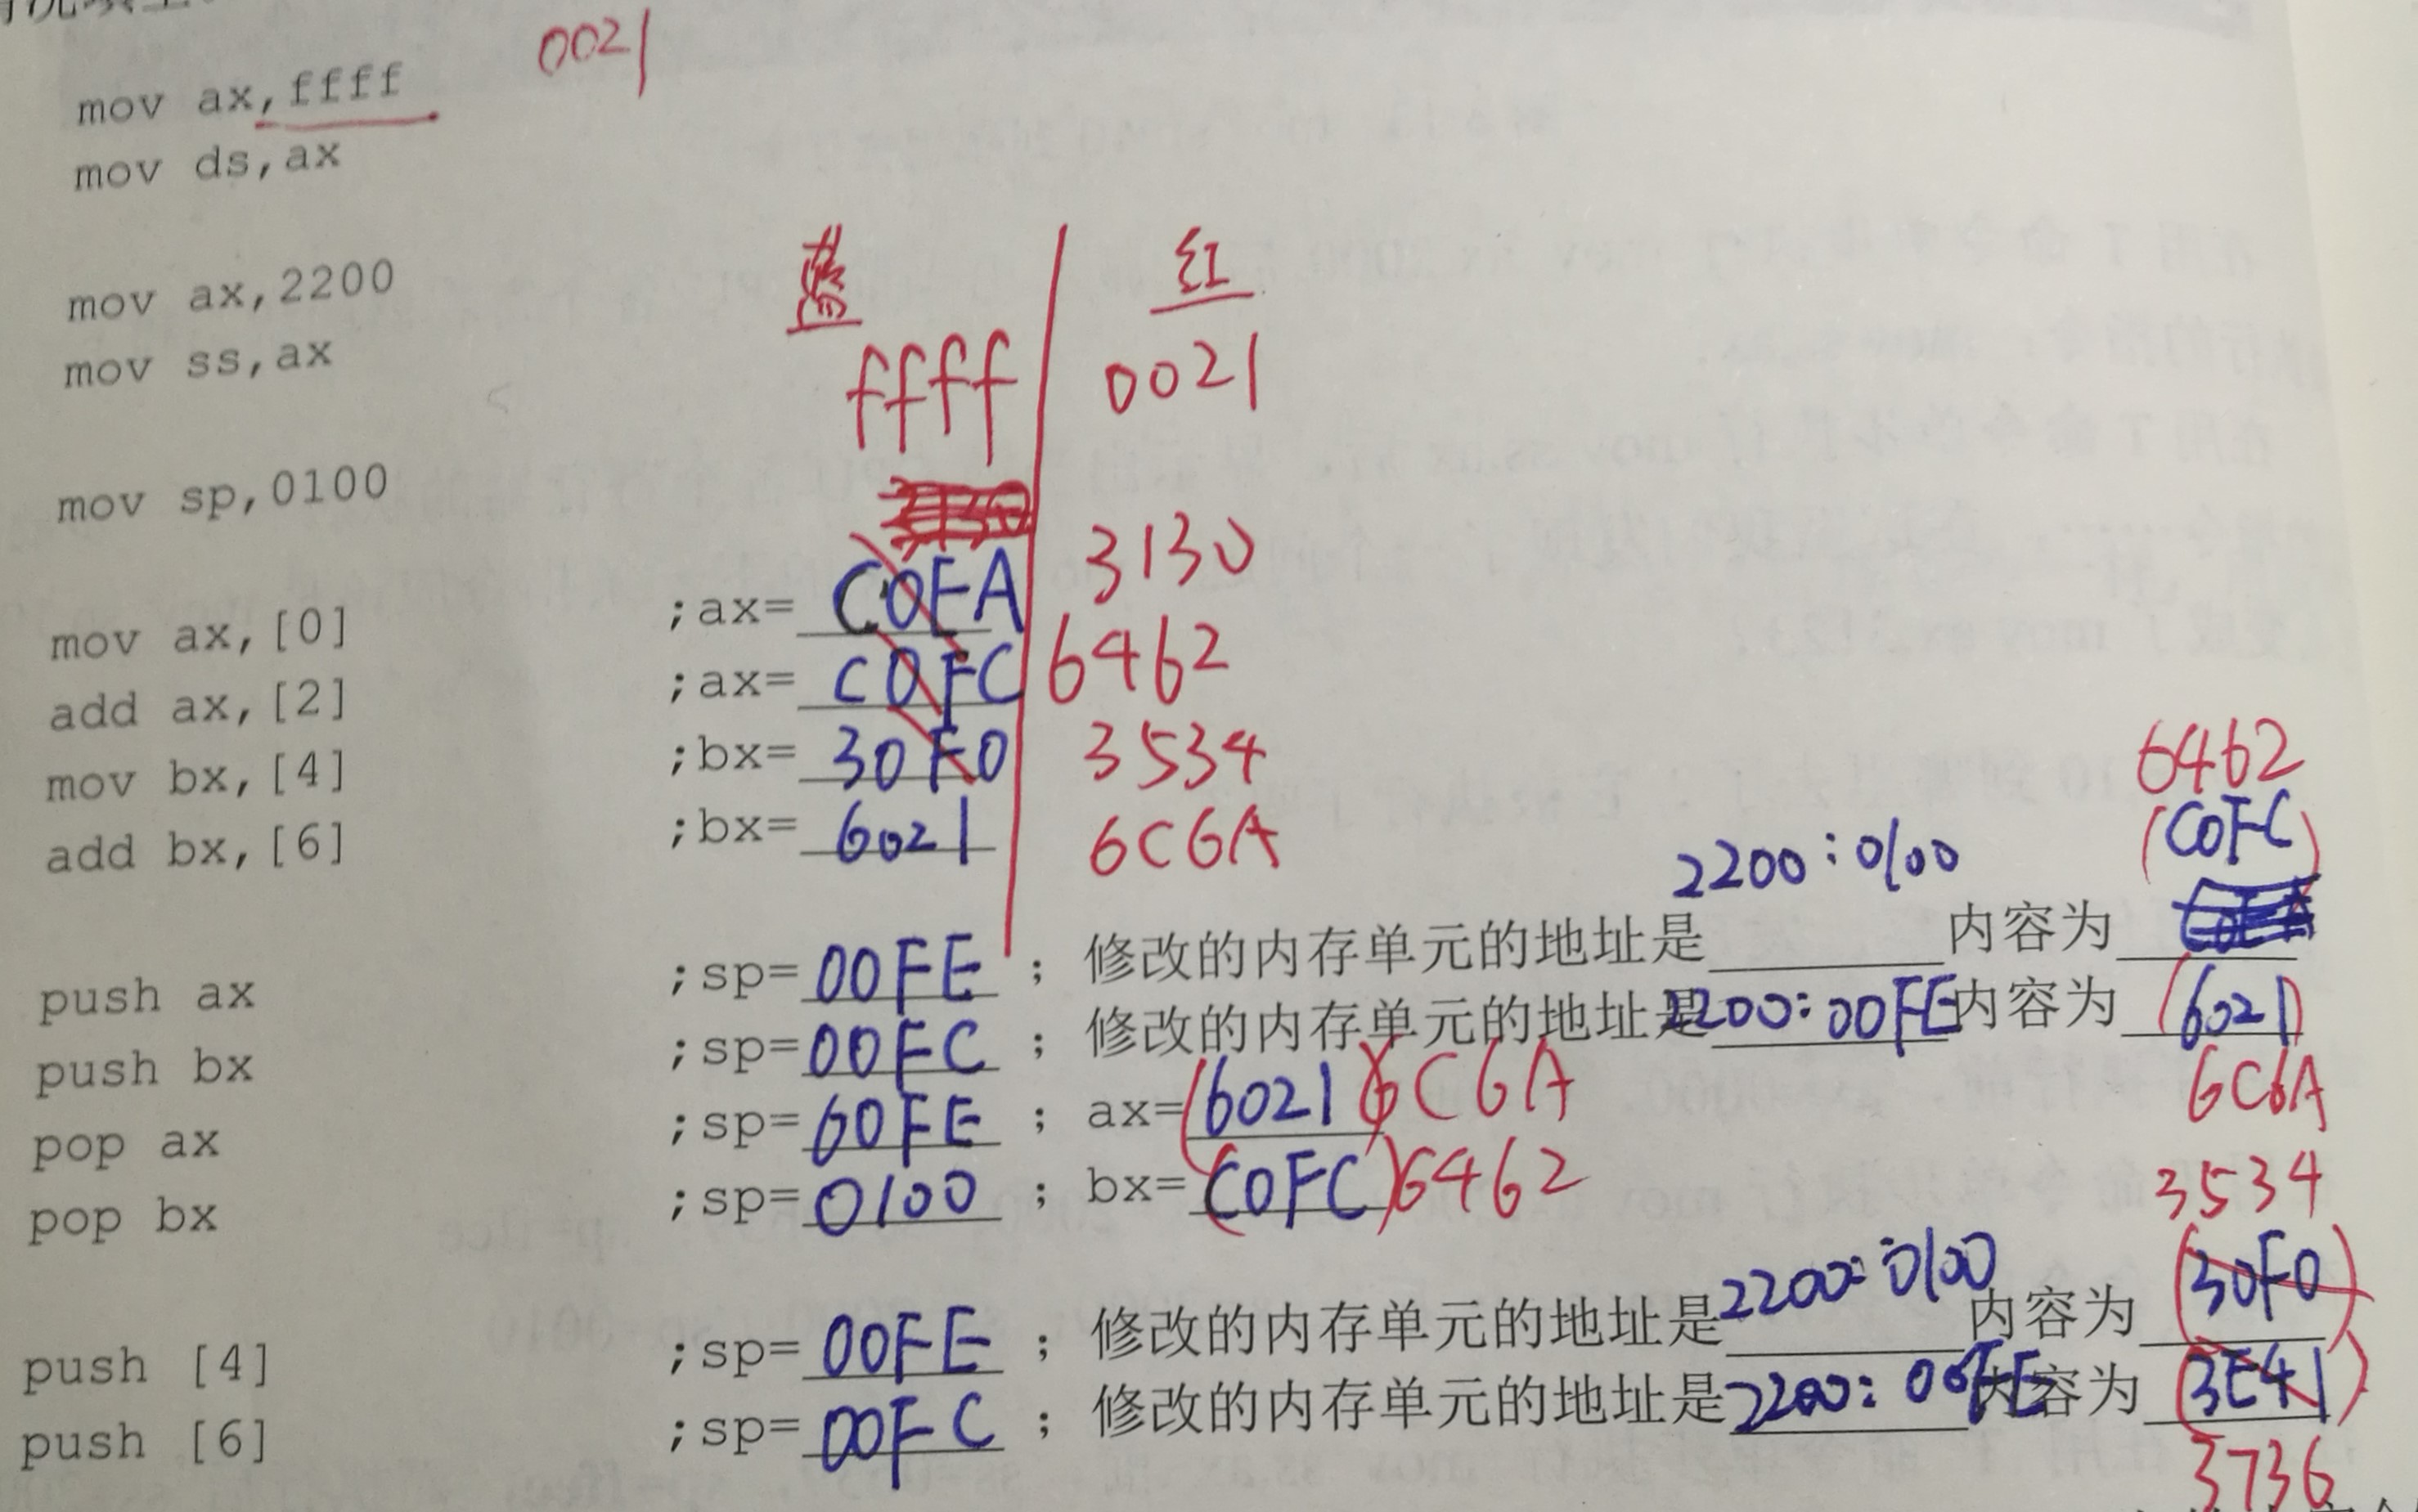 0021
mov ax,ffff
mov ds,ax
mov ax,2200
mov ss,ax
mov sp,0100
蓝 红
ffff 0021
3130
mov ax,[0] ;ax= C0EA
add ax,[2] ;ax= C0FC 6462
mov bx,[4] ;bx= 30F0 3534
add bx,[6] ;bx= 6021 6C6A
6462
2200:0100 (C0FC)
push ax ;sp= 00FE ; 修改的内存单元的地址是 内容为
push bx ;sp= 00FC ; 修改的内存单元的地址是 2200:00FE 内容为 (6021)
6C6A
pop ax ;sp= 00FE ; ax= (6021) 6C6A
pop bx ;sp= 0100 ; bx= (C0FC) 6462
3534
push [4] ;sp= 00FE ; 修改的内存单元的地址是 2200:0100 内容为 (30F0)
push [6] ;sp= 00FC ; 修改的内存单元的地址是 2200:00FE 内容为 (3E41)
3736